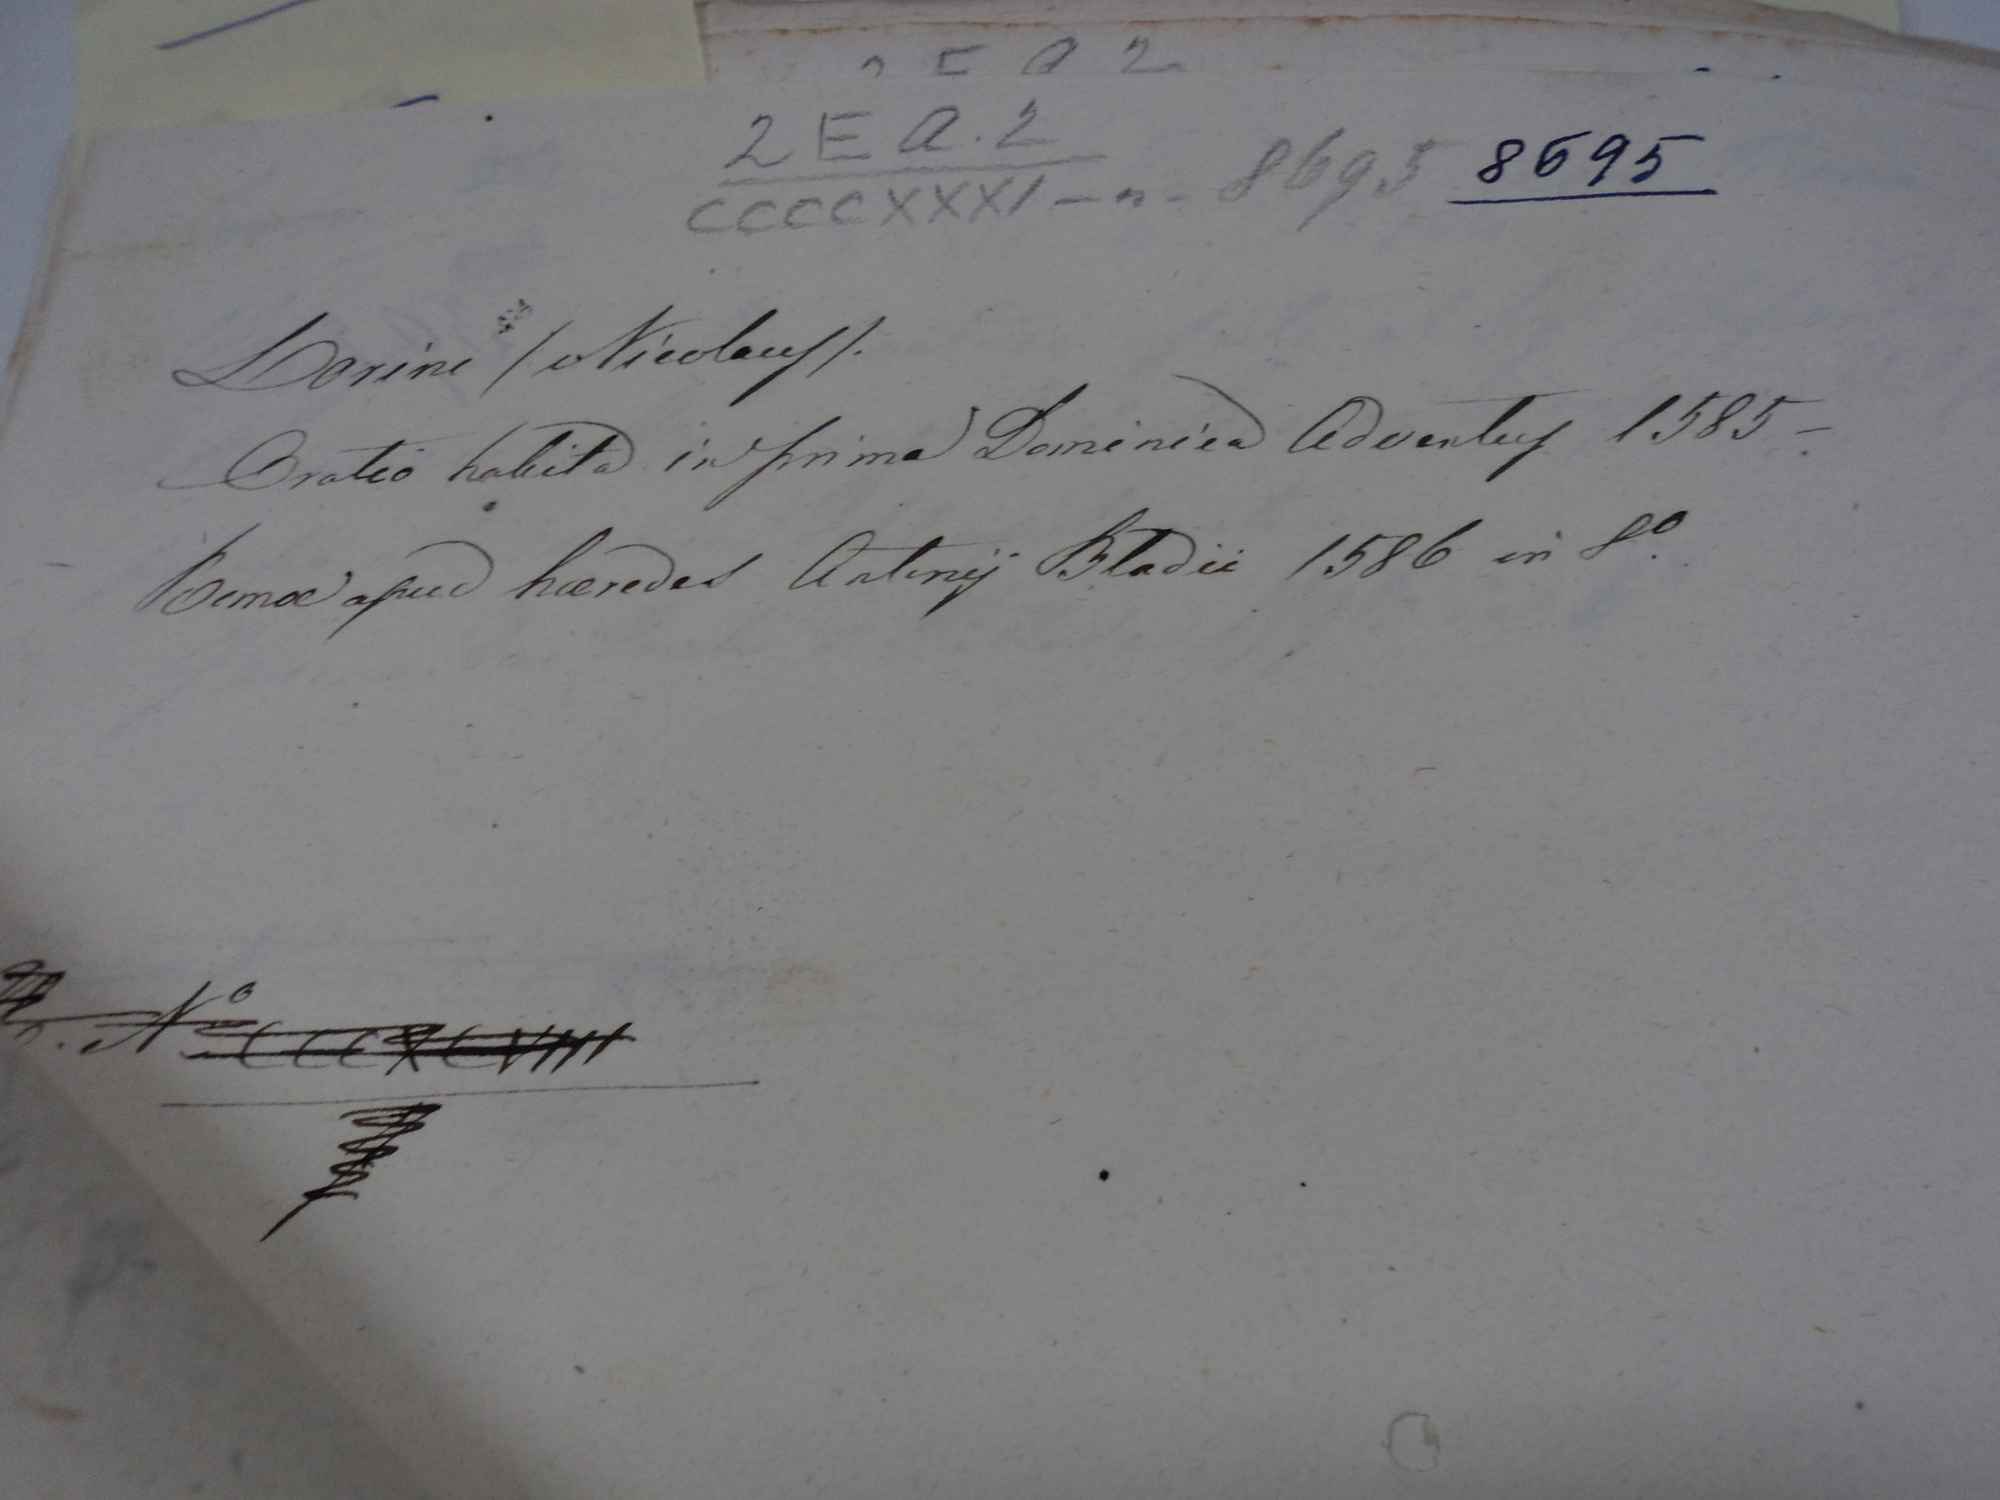 2 E a. 2
2 E a. 2
CCCCXXXI - n - 8695 8695
Lorini (Nicolaus).
Oratio habita in prima Dominica Adventus 1585 -
Romae apud haeredes Antonij Bladii 1586 in 8º.
Nº CCCXCVIII